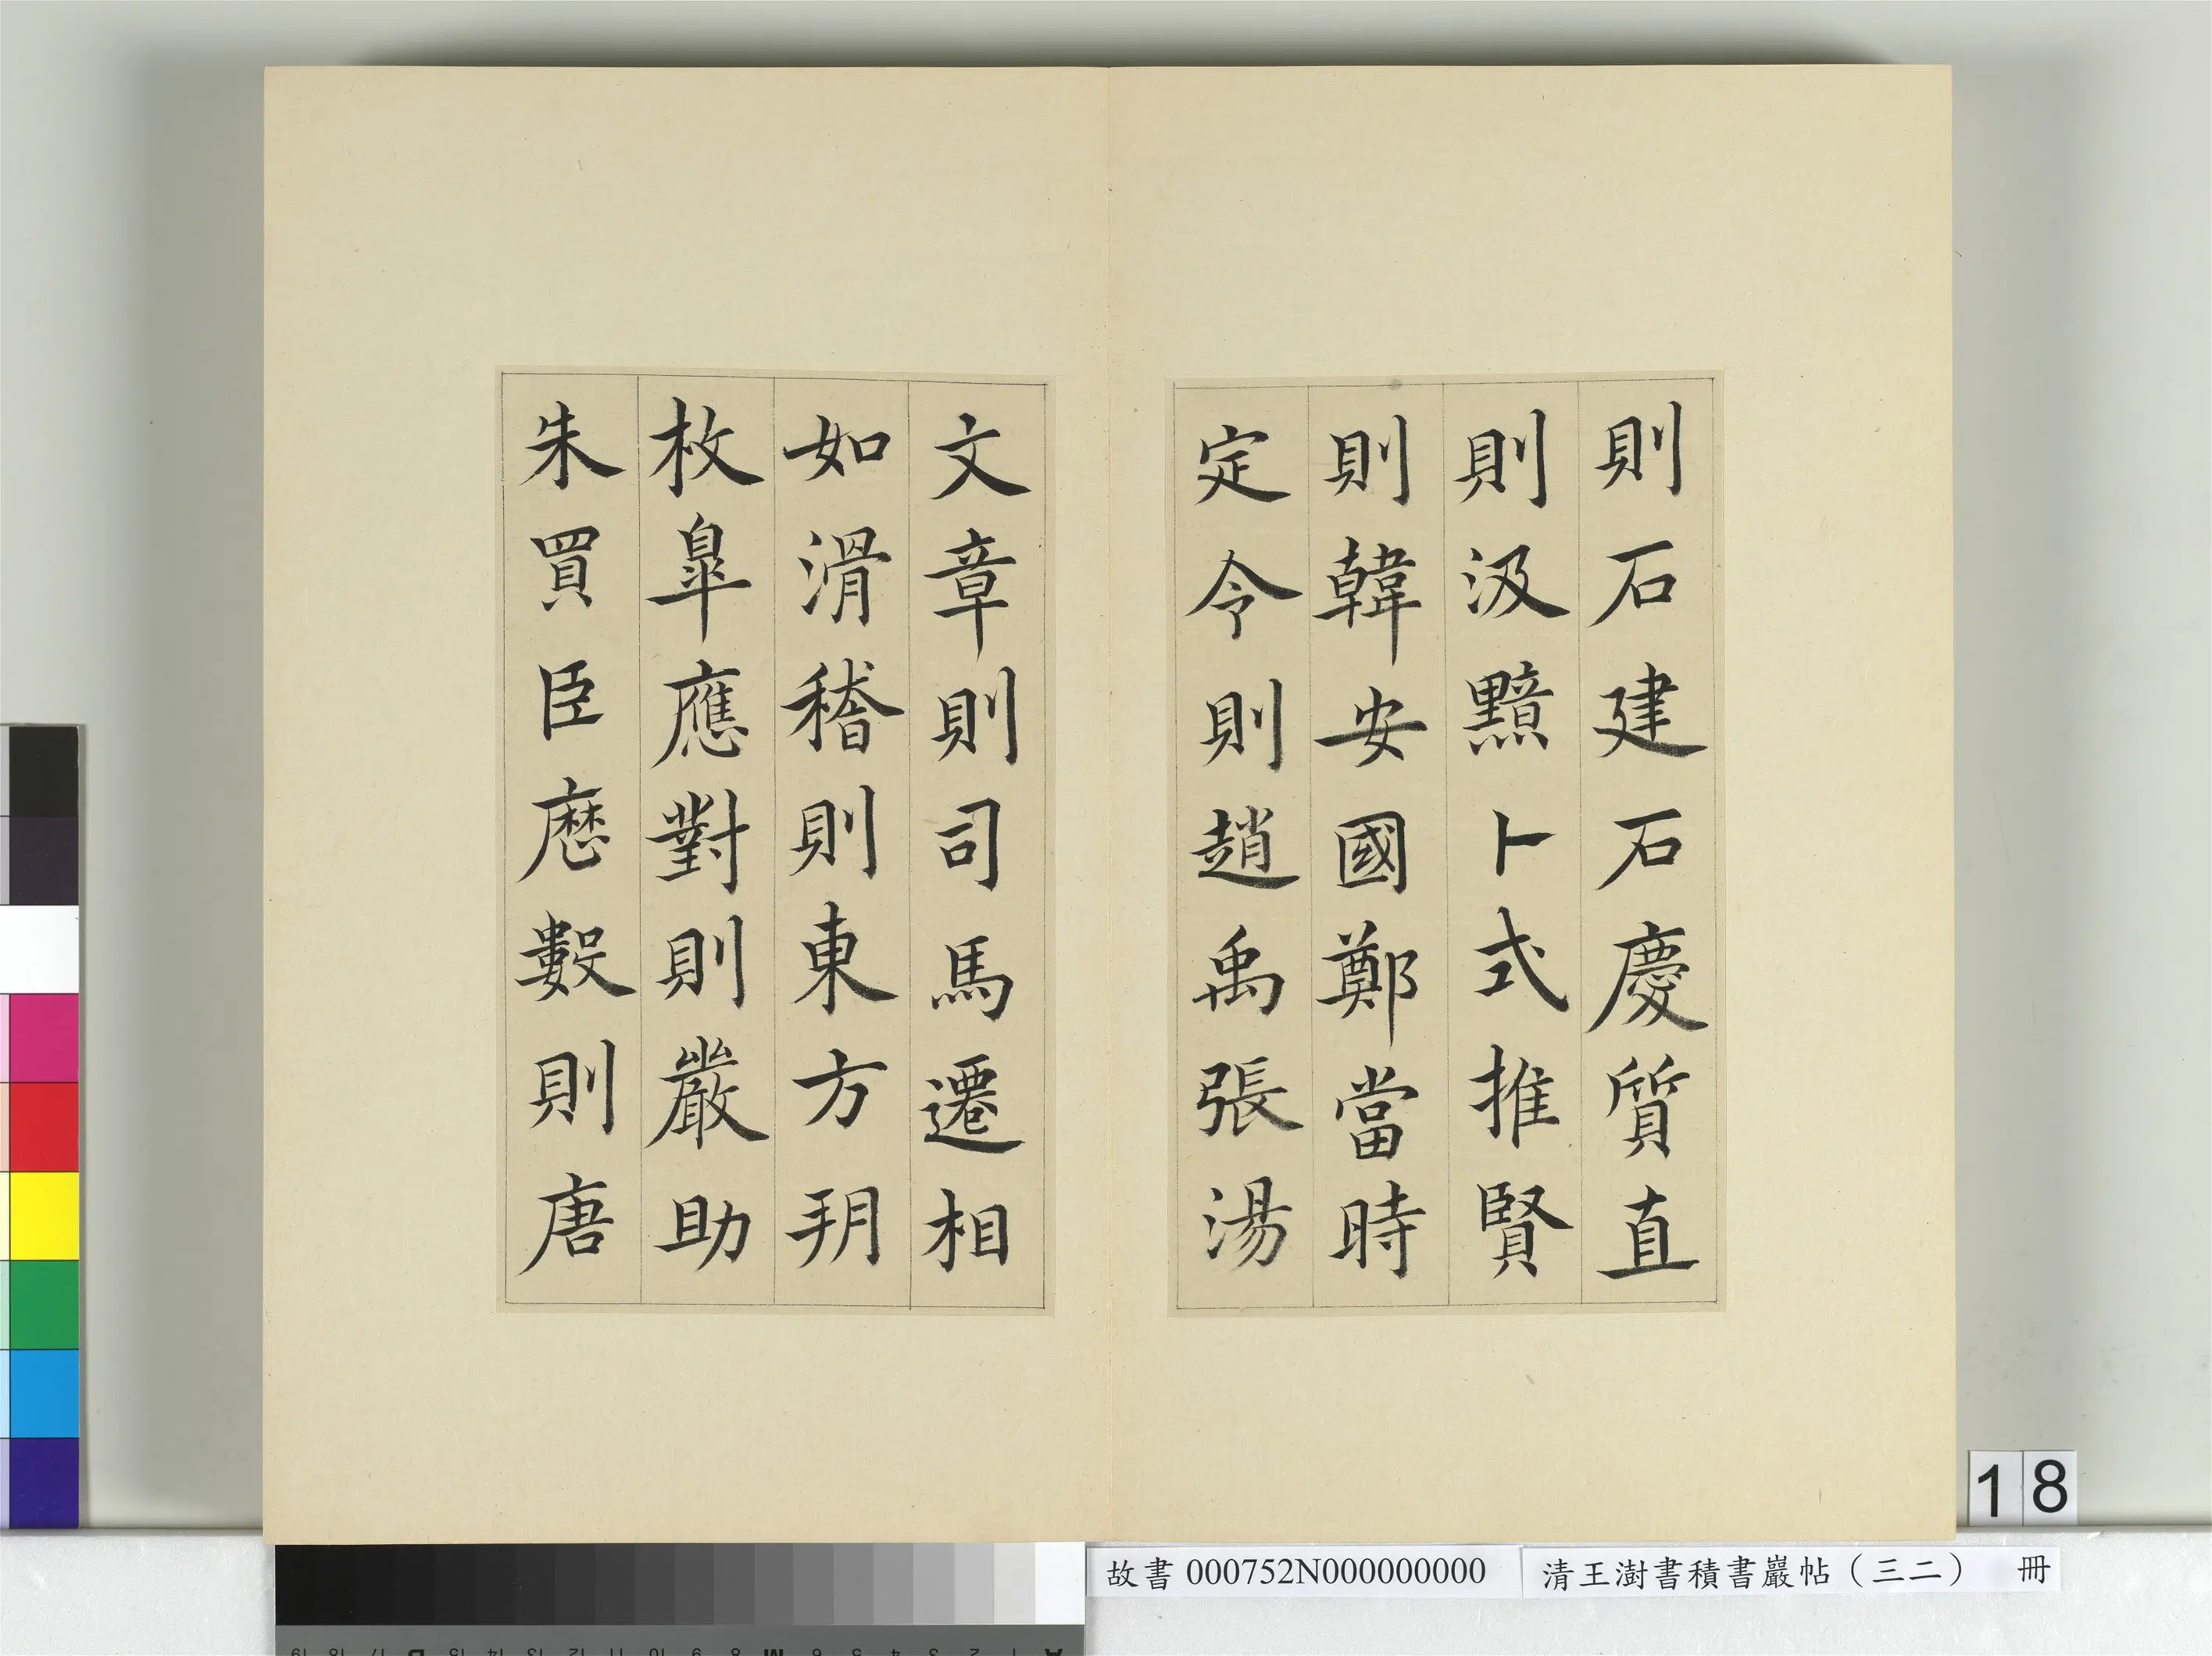 則石建石慶質直
則汲黯卜式推賢
則韓安國鄭當時
定令則趙禹張湯
文章則司馬遷相
如滑稽則東方朔
枚皐應對則嚴助
朱買臣厯數則唐
18
故書 000752N000000000
清王澍書積書巖帖（三二） 冊